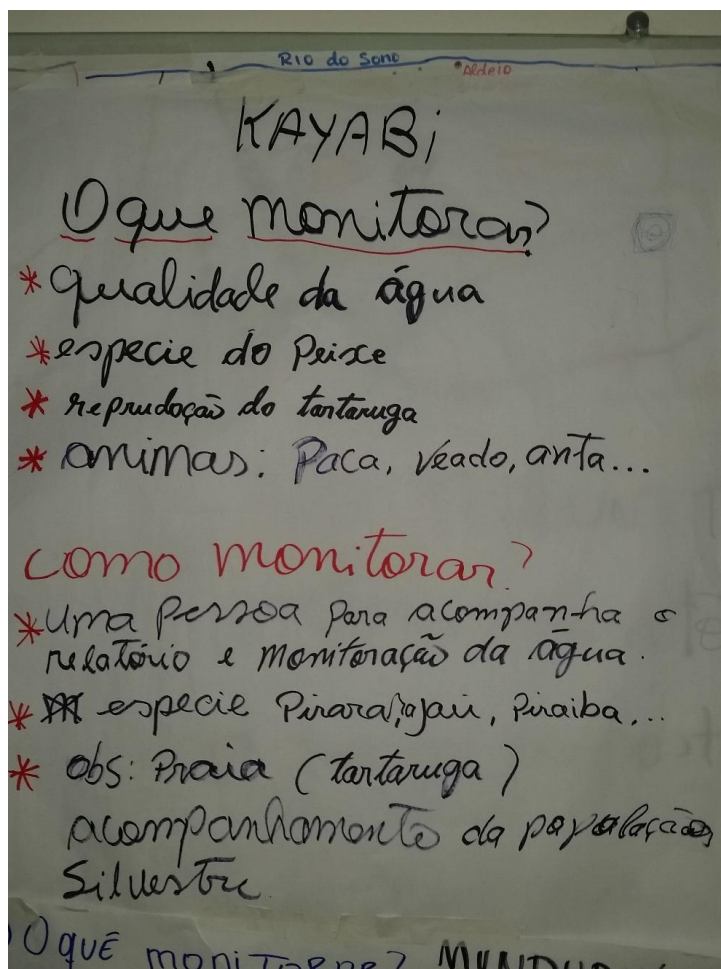 Rio do Sono
Aldeia
KAYABi
O que monitorar?
* qualidade da água
* especie do Peixe
* reprudoção do tartaruga
* animas: Paca, veado, anta...
como monitorar?
* uma Pessoa Para acompanha o
relatório e monitoração da água.
* especie Pirara, jaú, Piraiba,...
* obs: Praia (tartaruga)
acompanhamento da população
Silvestre
O quE monitorar?